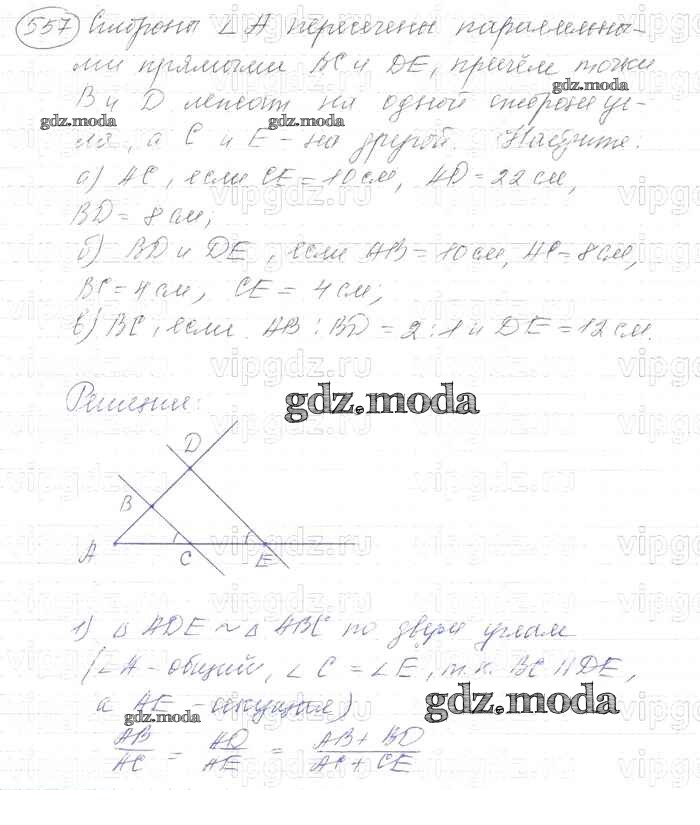 557 Стороны ∠ A пересечены параллельны-
ми прямыми BC и DE, причём точки
B и D лежат на одной стороне уг-
ла, а C и E - на другой. Найдите:
а) AC, если CE = 10 см, AD = 22 см,
BD = 8 см;
б) BD и DE, если AB = 10 см, AC = 8 см,
BC = 4 см, CE = 4 см;
в) BC, если AB : BD = 2 : 1 и DE = 12 см.
Решение:
gdz.moda
D
B
A
C
E
1) △ ADE ~ △ ABC по двум углам
(∠A - общий, ∠ C = ∠ E, т.к. BC || DE,
а AE - секущая)
AB/AC = AD/AE = AB + BD/AC + CE
gdz.moda
gdz.moda
gdz.moda
gdz.moda
gdz.moda
vipgdz.ru